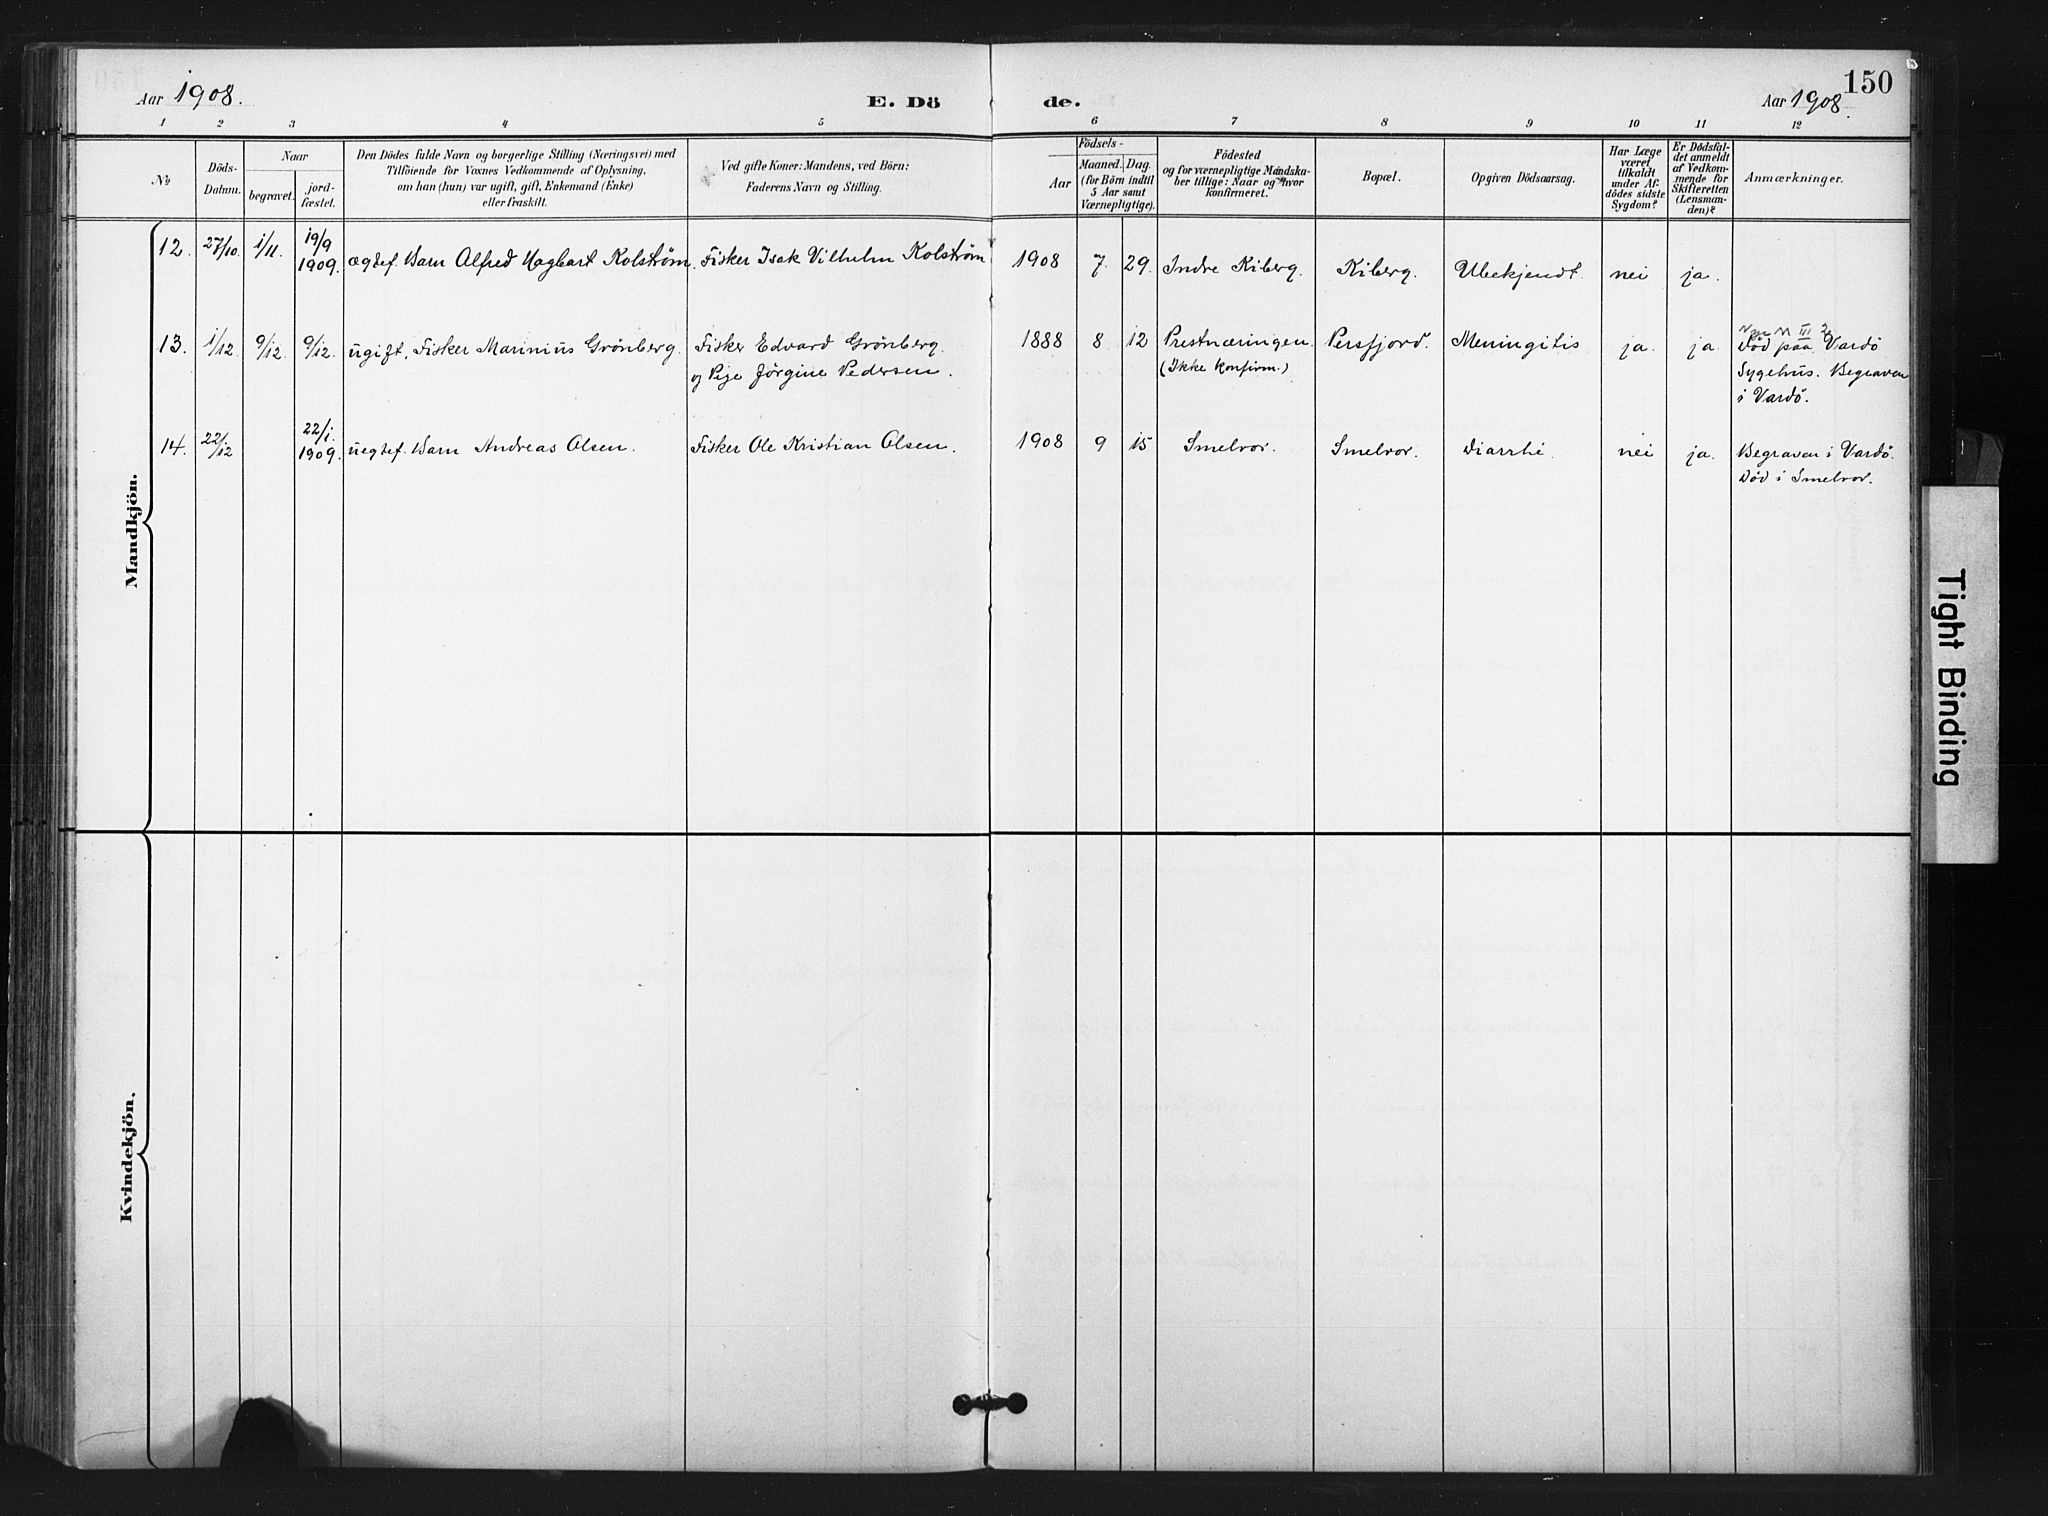 150
Aar 1908. E. Dö de. Aar 1908.
1 2 3 4 5 6 7 8 9 10 11 12
№
Döds-
Datum.
Naar
begravet.
jord-
fæstet.
Den Dödes fulde Navn og borgerlige Stilling (Næringsvei) med
Tilföiende for Voxnes Vedkommende af Oplysning,
om han (hun) var ugift, gift, Enkemand (Enke)
eller fraskilt.
Ved gifte Koner: Mandens, ved Börn:
Faderens Navn og Stilling.
Födsels-
Aar
Maaned. Dag.
(for Börn indtil
5 Aar samt
Værnepligtige).
Födested
og for værnepligtige Mandska-
ber tillige: Naar og hvor
konfirmeret.
Bopæl.
Opgiven Dödsaarsag.
Har Læge
været
tilkaldt
under Af-
dödes sidste
Sygdom?
Er Dödsfal-
det anmeldt
af Vedkom-
mende for
Skifteretten
(Lensman-
den)?
Anmærkninger.
Mandkjön.
12. 27/10. 1/11. 19/9 1909. ægtef. Barn Alfred Hagbart Kolström. Fisker Isak Vilhelm Kolström 1908 7. 29. Indre Kiberg. Kiberg. Ubekjendt. nei ja.
13. 1/12 9/12. 9/12. ugift, Fisker Marinius Grönberg. Fisker Edvard Grönberg. 1888 8 12 Prestnæringen. Persfjord. Meningitis ja. ja Död paa Vardö
og Pige Jörgine Pedersen. (Ikke konfirm.) Sygehus. Begraven
i Vardö.
14. 22/12 22/1. 1909. uegtef. Barn Andreas Olsen. Fisker Ole Kristian Olsen. 1908 9 15 Smelvor. Smelvor. Diarrhé. nei ja. Begraven i Vardö.
Död i Smelvor.
Kvindekjön.
Tight Binding